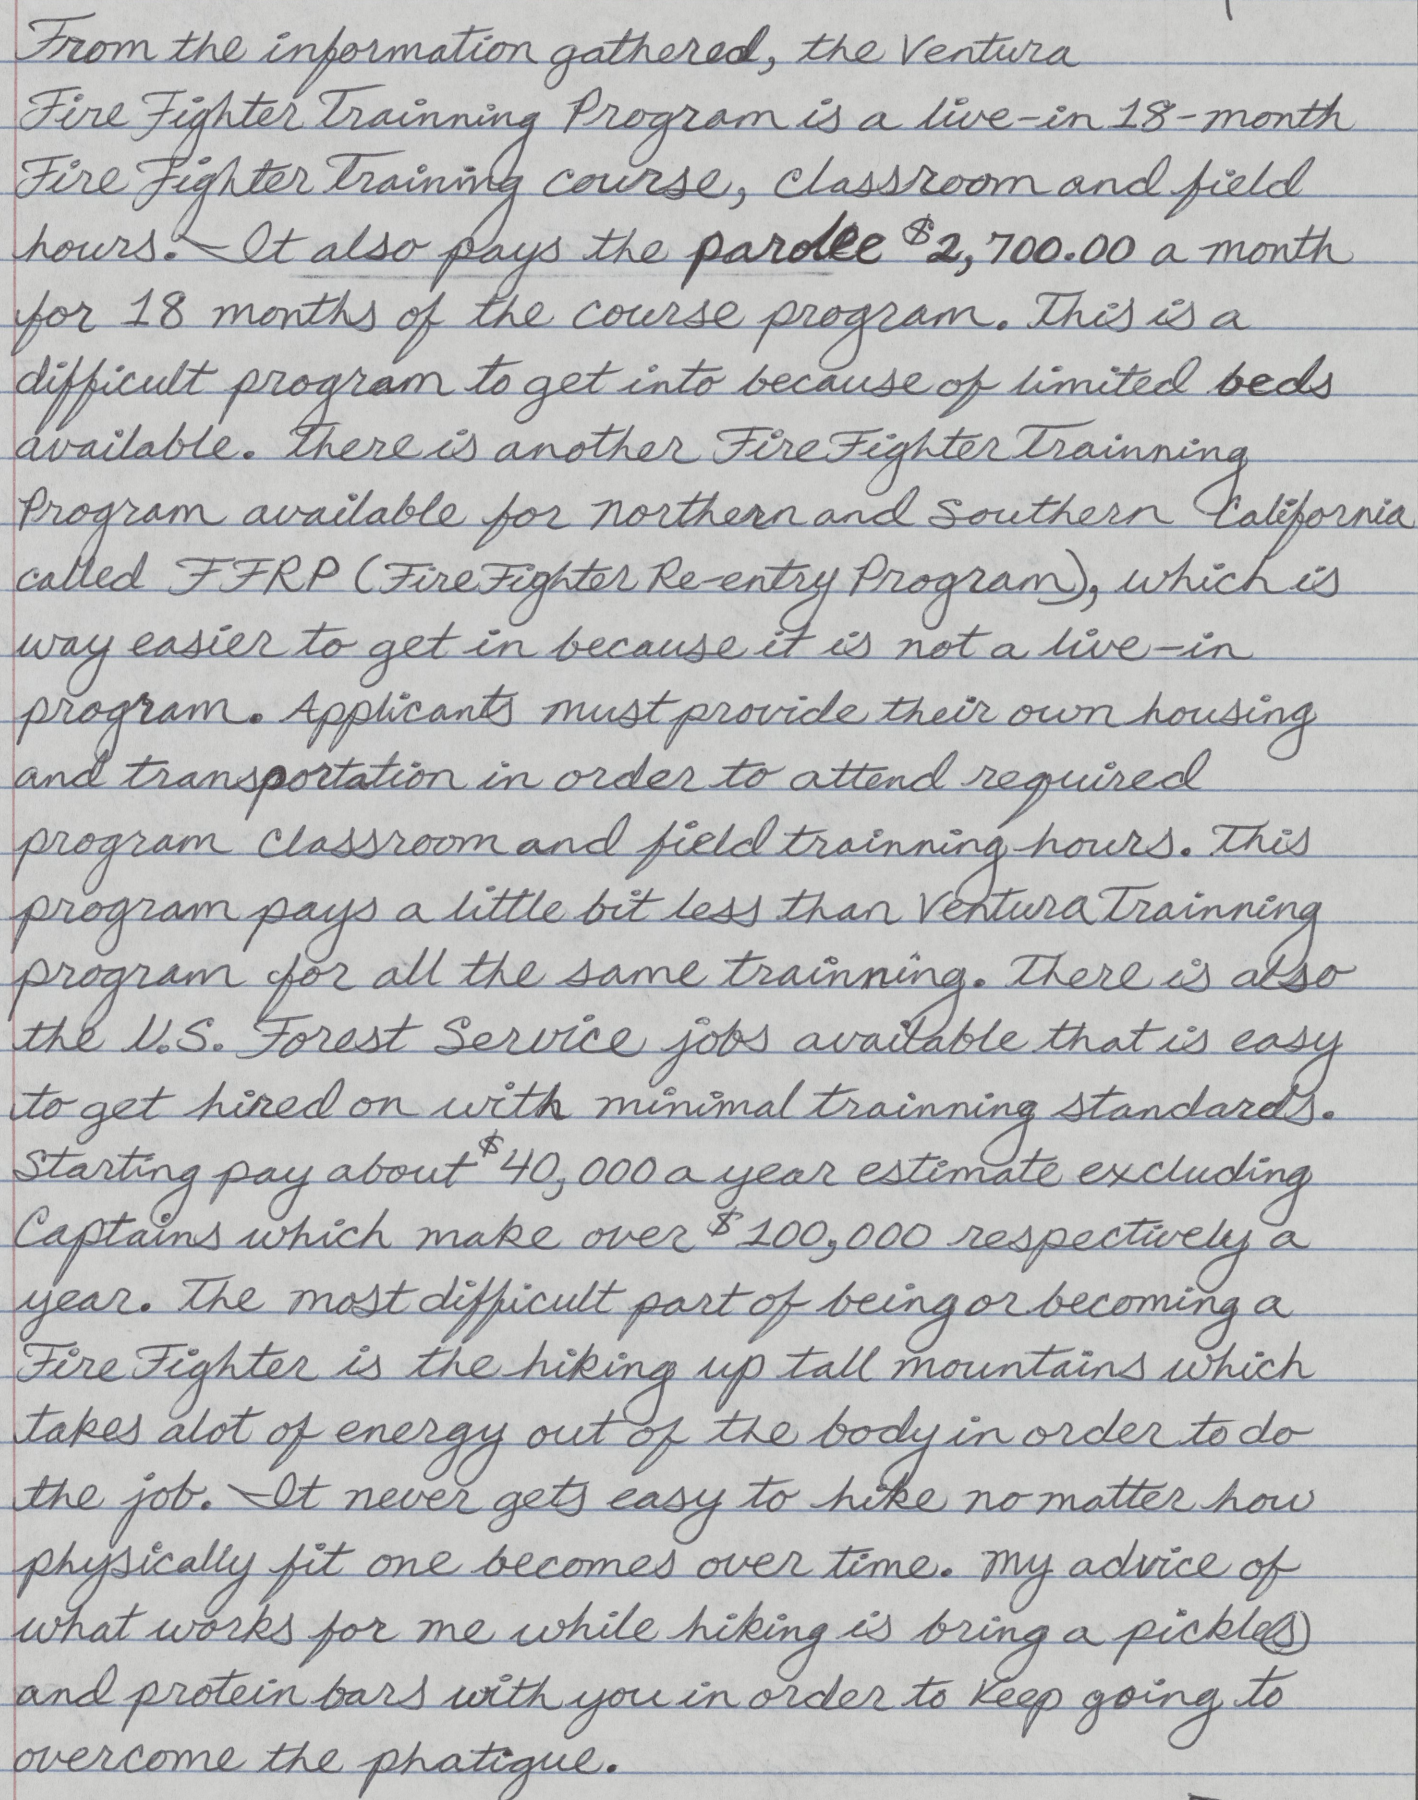 From the information gathered, the Ventura
Fire Fighter Trainning Program is a live-in 18-month
Fire Fighter Training course, classroom and field
hours. It also pays the parolee $2,700.00 a month
for 18 months of the course program. This is a
difficult program to get into because of limited beds
available. There is another Fire Fighter Trainning
Program available for Northern and Southern California
called FFRP (Fire Fighter Re-entry Program), which is
way easier to get in because it is not a live-in
program. Applicants must provide their own housing
and transportation in order to attend required
program classroom and field trainning hours. This
program pays a little bit less than Ventura Trainning
program for all the same trainning. There is also
the U.S. Forest Service jobs available that is easy
to get hired on with minimal trainning standards.
Starting pay about $40,000 a year estimate excluding
Captains which make over $100,000 respectively a
year. The most difficult part of being or becoming a
Fire Fighter is the hiking up tall mountains which
takes alot of energy out of the body in order to do
the job. It never gets easy to hike no matter how
physically fit one becomes over time. My advice of
what works for me while hiking is bring a pickle(s)
and protein bars with you in order to keep going to
overcome the phatigue.